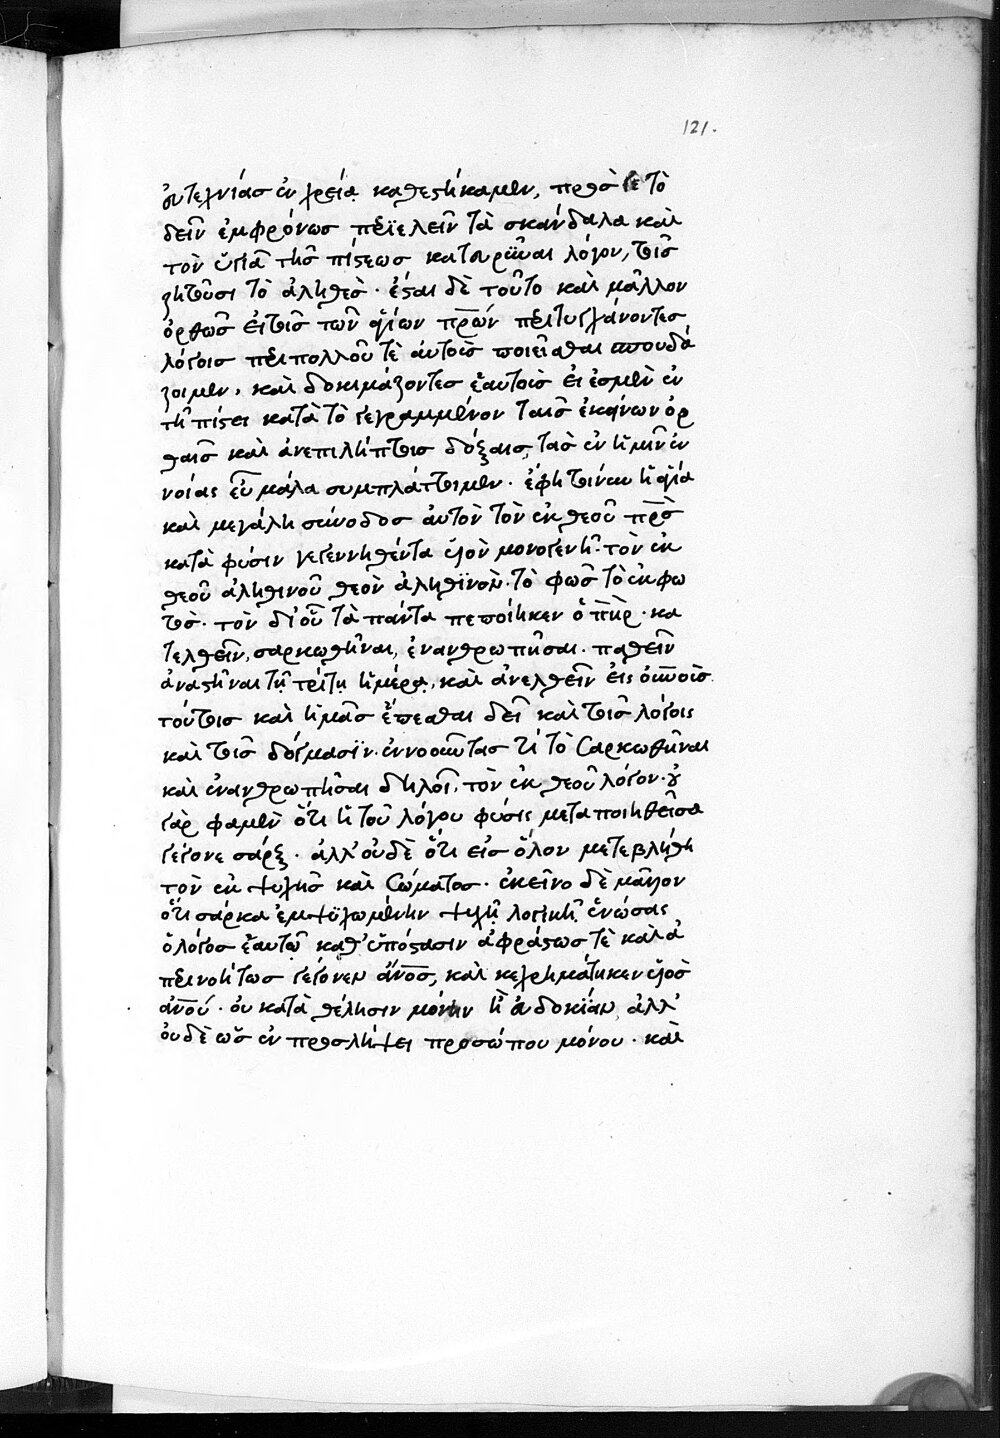 121.
εὐτεχνίας ἐν χρεία καθεστήκαμεν, πρὸς γε τὸ
δεῖν ἐμφρόνως περϊελεῖν τὰ σκάνδαλα καὶ
τὸν ὑγιᾶ τῆς πίστεως κατευρῦναι λόγον, τοῖς
ζητοῦσι τὸ ἀληθές · ἔσται δὲ τοῦτο καὶ μᾶλλον
ὀρθῶς εἰ τοῖς τῶν ἁγίων π̅ρ̅ων περιτυγχάνοντες
λόγοις περιπολλοῦ τὲ αὐτοὺς ποιεῖσθαι σπουδά
ζοιμεν, καὶ δοκιμάζοντες ἑαυτοὺς εἰ ἐσμὲν ἐν
τῆ πίστει κατὰ τὸ γεγραμμένον ταῖς ἐκείνων ὀρ
θαῖς καὶ ἀνεπιλήπτοις δόξαις, τὰς ἐν ἡμῖν ἐν
νοίας εὖ μάλα συμπλάττοιμεν · ἔφη τοίνυν ἡ ἁγία
καὶ μεγάλη σύνοδος αὐτὸν τὸν ἐκ θεοῦ π̅ρ̅ς
κατὰ φύσιν γεγεννηθέντα υἱὸν μονογενῆ · τὸν ἐκ
θεοῦ ἀληθινοῦ θεὸν ἀληθϊνὸν · τὸ φῶς τὸ ἐκ φω
τὸς · τὸν δι' οὗ τὰ πάντα πεποίηκεν ὁ π̅η̅ρ · κα
τελθεῖν, σαρκωθῆναι, ἐνανθρωπῆσαι · παθεῖν
ἀναστῆναι τῆ τρίτη ἡμέρα, καὶ ἀνελθεῖν εἰς ο̅υ̅νοὺς
τούτοις καὶ ἡμᾶς ἕπεσθαι δεῖ καὶ τοῖς λόγοις
καὶ τοῖς δόγμασϊν · ἐννοοῦντας τί τὸ σαρκωθῆναι
καὶ ἐνανθρωπῆσαι δηλοῖ, τὸν ἐκ θεοῦ λόγον · οὐ
γάρ φαμὲν ὅτι ἡ τοῦ λόγου φύσις μεταποιηθεῖσα
γέγονε σάρξ · ἀλλ' οὐδὲ ὅτι εἰς ὅλον μετεβλήθη
τὸν ἐκ ψυχῆς καὶ σώματος · ἐκεῖνο δὲ μᾶλλον
ὅτι σάρκα ἐμψϋχωμένην ψυχῆ λογικῆ ἑνώσας
ὁ λόγος ἑαυτῶ καθ' ὑπόστασιν ἀφράστως τὲ καὶ ἀ
περινοήτως γέγονεν ἄ̅ν̅ο̅ς, καὶ κεχρημάτηκεν υἱὸς
ἀ̅ν̅ο̅υ · οὐ κατὰ θέλησιν μόνην ἢ εὐδοκίαν, ἀλλ'
οὐδὲ ὡς ἐν προσλήψει προσώπου μόνου · καὶ